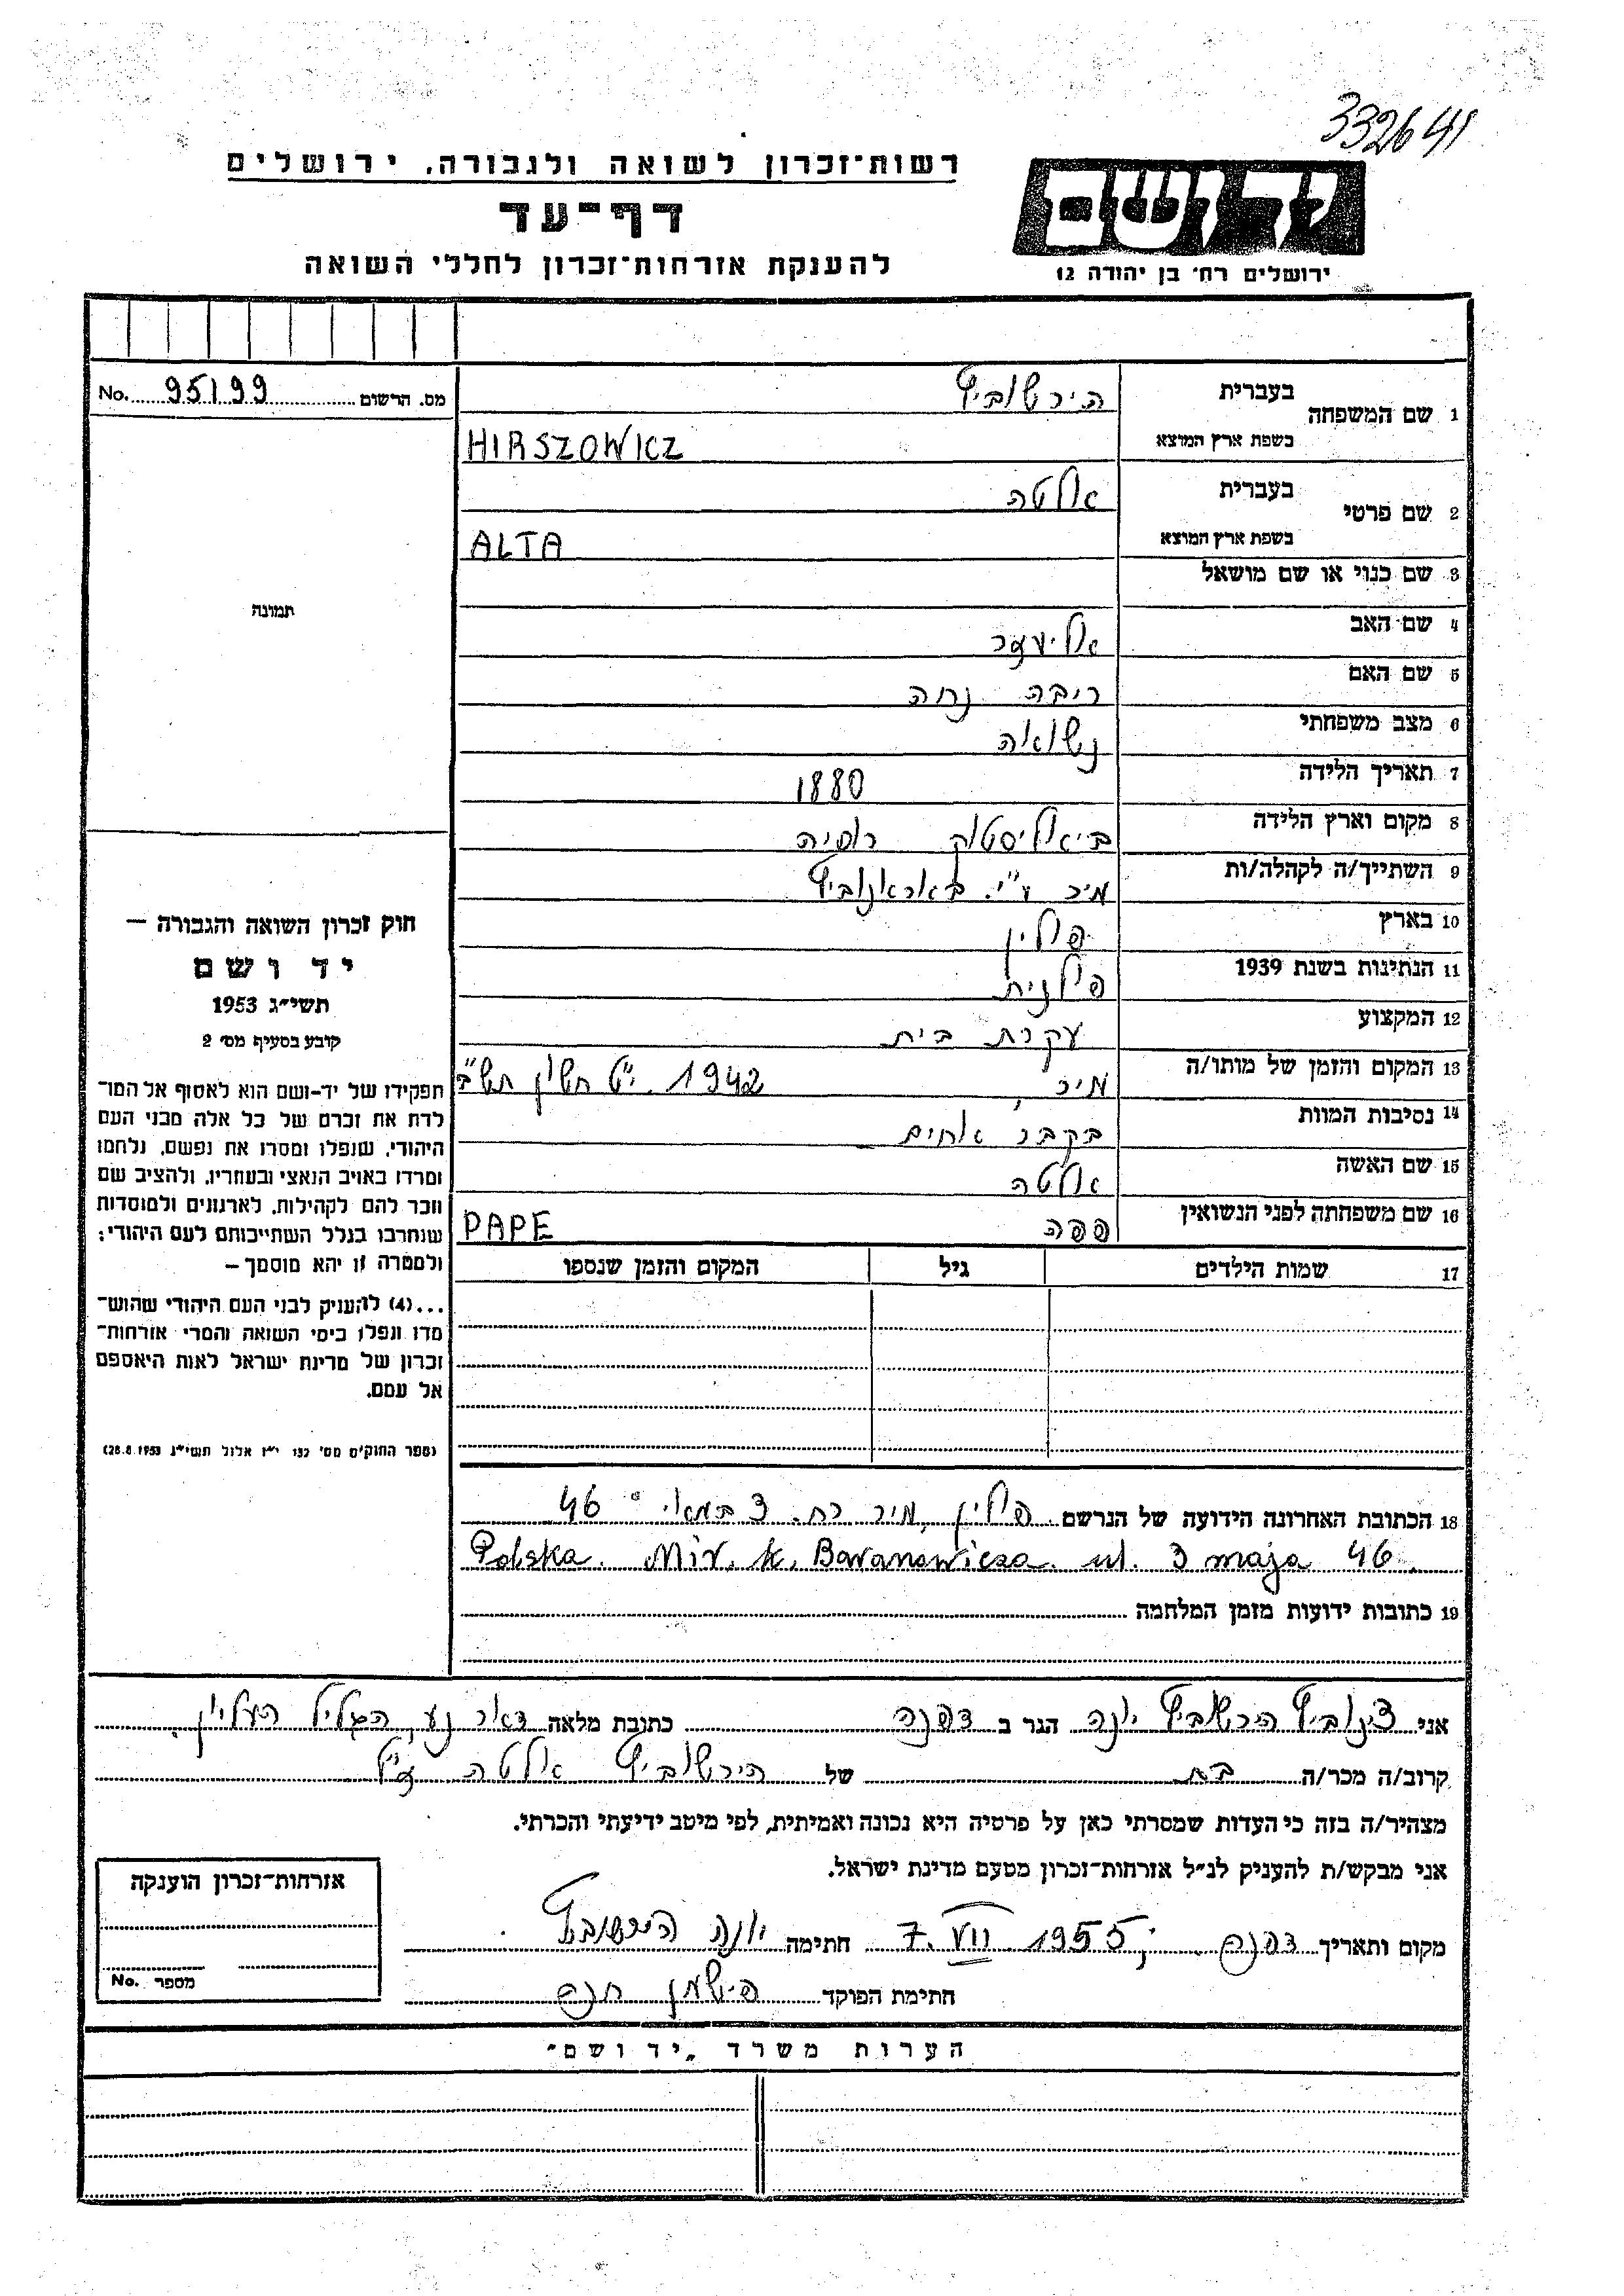 332641
רשות-זכרון לשואה ולגבורה, ירושלים
דף-עד
להענקת אזרחות-זכרון לחללי השואה
יד ושם
ירושלים רח׳ בן יהודה 12
מס. הרשום 95199 No.
1 שם המשפחה בעברית הירשוביץ
בשפת ארץ המוצא HIRSZOWICZ
2 שם פרטי בעברית אלטה
בשפת ארץ המוצא ALTA
3 שם כנוי או שם מושאל
4 שם האב אליעזר
5 שם האם ריבה נחה
6 מצב משפחתי נשואה
7 תאריך הלידה 1880
8 מקום וארץ הלידה ביאליסטוק רוסיה
9 השתייך/ה לקהלה/ות מיר ע"י באראנוביץ
10 בארץ פולין
11 הנתינות בשנת 1939 פולנית
12 המקצוע עקרת בית
13 המקום והזמן של מותו/ה מיר, 1942 י"ט חשון תש"ב
14 נסיבות המוות בקבר אחים
15 שם האשה אלטה
16 שם משפחתה לפני הנשואין פפה PAPE
17 שמות הילדים גיל המקום והזמן שנספו
תמונה
חוק זכרון השואה והגבורה –
יד ושם
תשי״ג 1953
קובע בסעיף מס׳ 2
תפקידו של יד-ושם הוא לאסוף אל המו־
לדת את זכרם של כל אלה מבני העם
היהודי, שנפלו ומסרו את נפשם, נלחמו
ומרדו באויב הנאצי ובעוזריו, ולהציב שם
וזכר להם לקהילות, לארגונים ולמוסדות
שנחרבו בגלל השתייכותם לעם היהודי;
ולמטרה זו יהא מוסמך –
...(4) להעניק לבני העם היהודי שהוש־
מדו ונפלו בימי השואה והמרי אזרחות־
זכרון של מדינת ישראל לאות היאספם
אל עמם.
(ספר החוקים מס׳ 132 י״ז אלול תשי״ג 28.8.1953)
18 הכתובת האחרונה הידועה של הנרשם פולין, מיר רח. 3 במאי 46
Polska. Mir. k. Baranowicza. ul. 3 maja 46
19 כתובות ידועות מזמן המלחמה
אני הירשוביץ יונה הגר ב דפנה כתובת מלאה דאר נע, הגליל העליון
קרוב/ה מכר/ה בת של הירשוביץ אלטה ז"ל
מצהיר/ה בזה כי העדות שמסרתי כאן על פרטיה היא נכונה ואמיתית, לפי מיטב ידיעתי והכרתי.
אני מבקש/ת להעניק לנ״ל אזרחות-זכרון מטעם מדינת ישראל.
מקום ותאריך דפנה 7. VII 1955 חתימה יונה הירשוביץ
חתימת הפוקד פישמן חנה
אזרחות-זכרון הוענקה
מספר No.
הערות משרד „יד ושם״